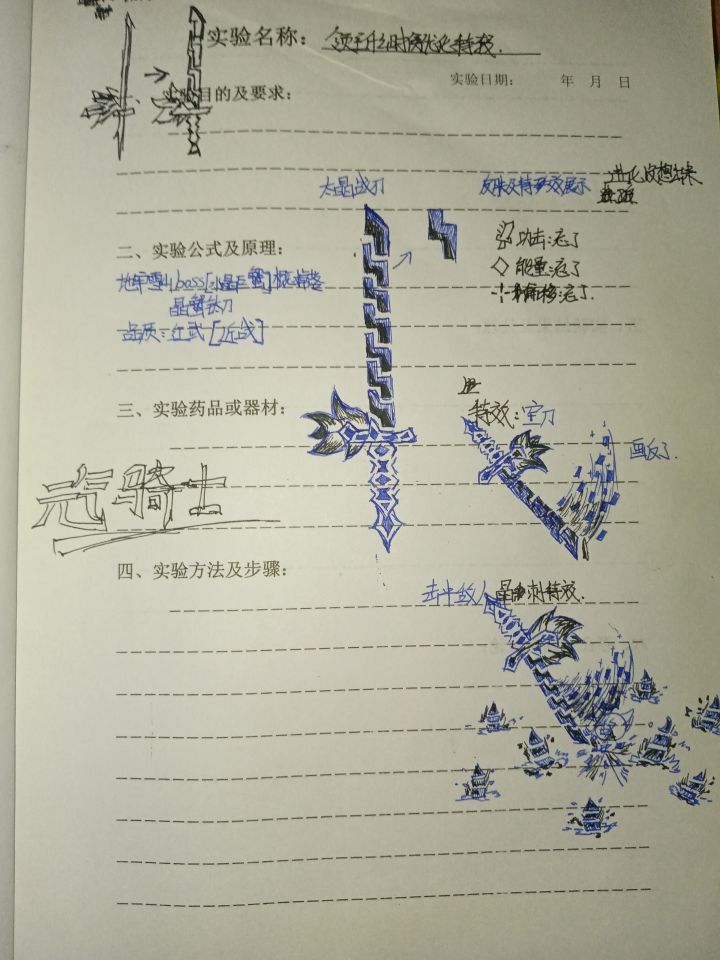 实验名称：
实验日期： 年 月 日
实验目的及要求：
大晶战刀
皮肤及特效展示
二、实验公式及原理：
功击：忘了
能量：忘了
偏移：忘了.
地牢雪山boss[水晶巨蟹]概率掉落
晶蟹铁刀
品质：红武[近战]
三、实验药品或器材：
特效：空刀
画反了.
元气骑士
四、实验方法及步骤：
击中敌人 晶刺特效.